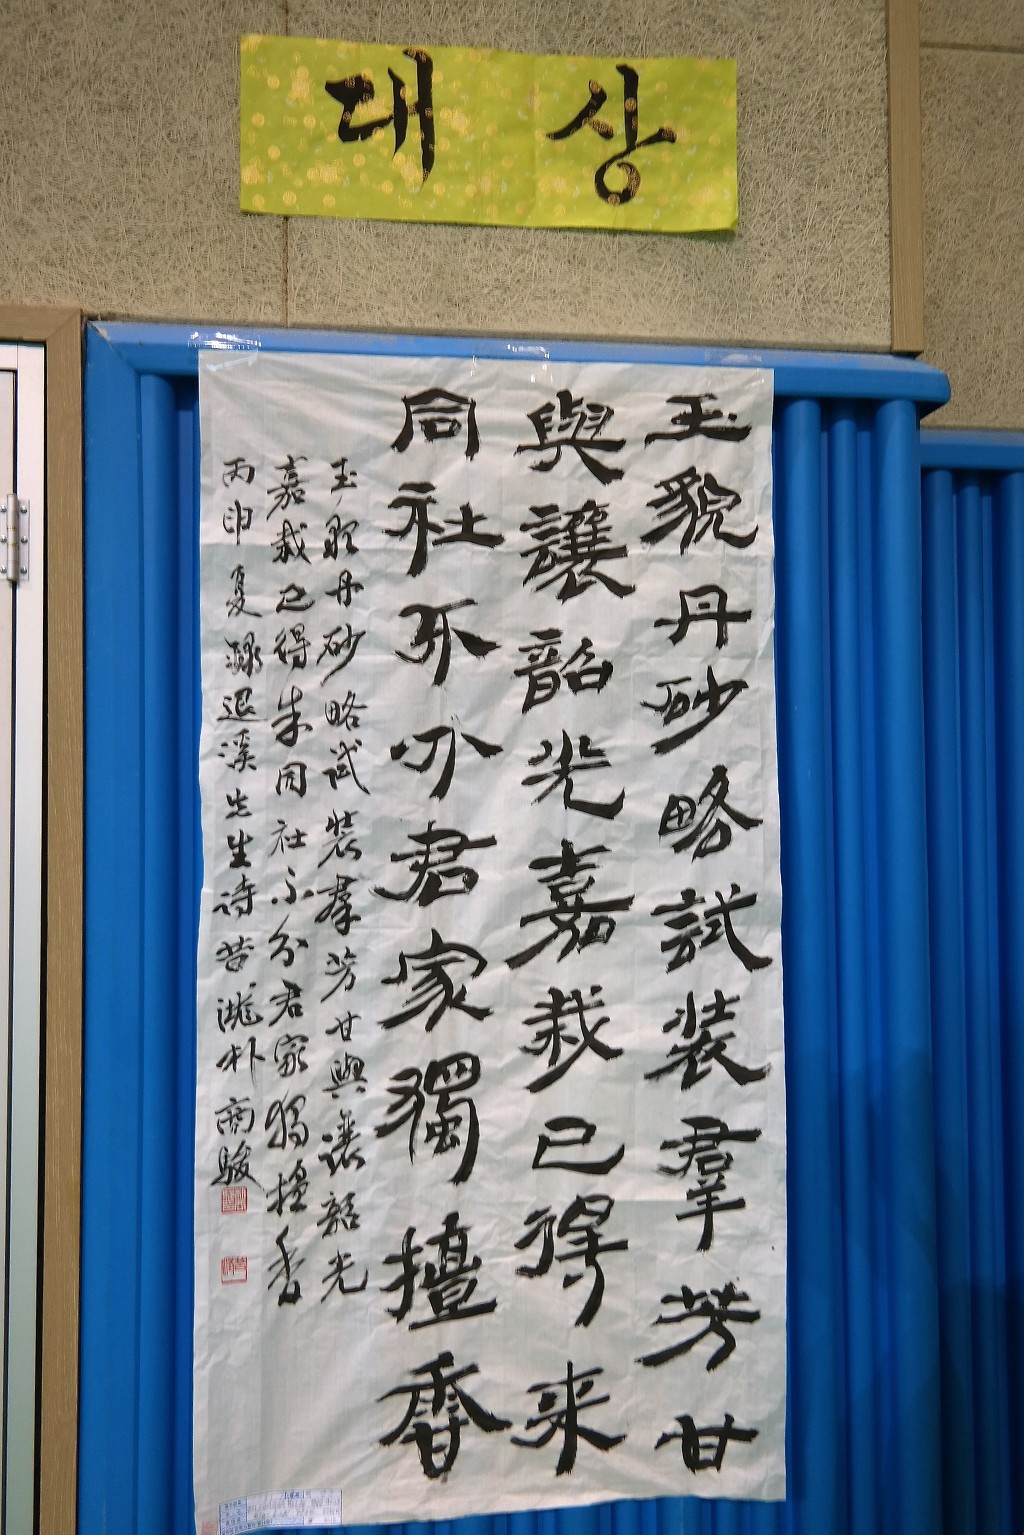 대상
玉貌丹砂略試裝羣芳甘
與讓韶光嘉栽已得来
同社不分君家獨擅香
玉貌丹砂略試裝羣芳甘與讓韶光
嘉栽已得来同社不分君家獨擅香
丙申夏錄退溪先生詩 朴商駿